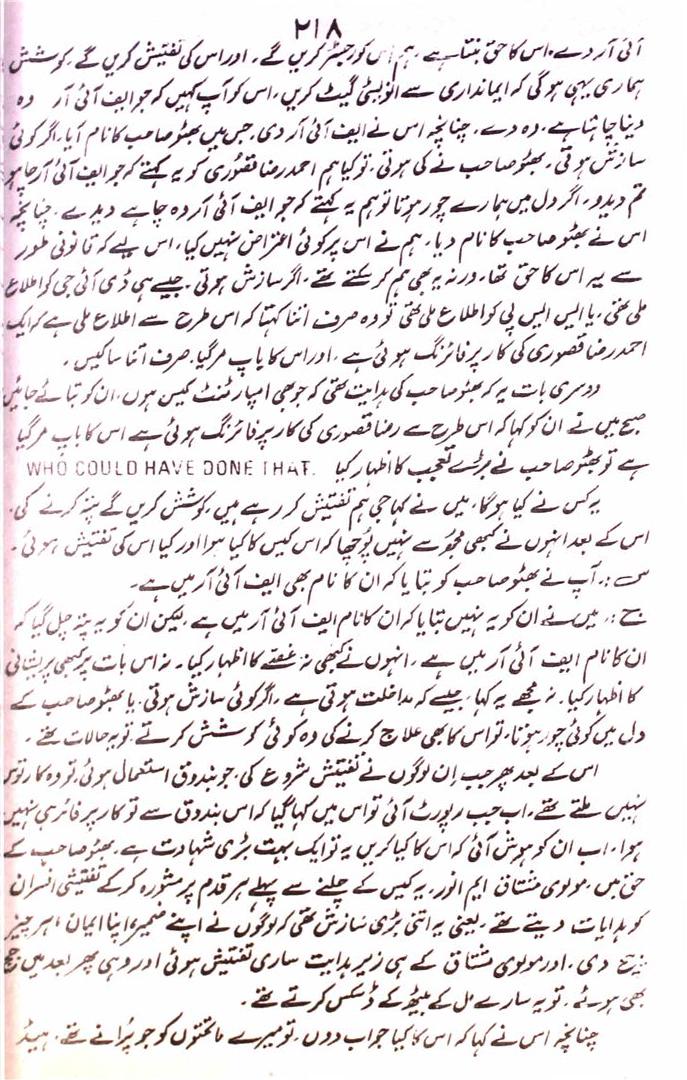 ۲۱۸
آئی آر دے، اس کا حق بنتا ہے، ہم اس کو رجسٹر کریں گے۔ اور اس کی تفتیش کریں گے، کوشش
ہماری یہی ہو گی کہ ایمانداری سے انویسٹی گیٹ کریں، اس کو آپ کہیں کہ جو ایف آئی آر وہ
دینا چاہتا ہے، وہ دے، چنانچہ اس نے ایف آئی آر دی، جس میں بھٹو صاحب کا نام آیا، اگر کوئی
سازش ہوتی، بھٹو صاحب نے کی ہوتی، تو کیا ہم احمد رضا قصوری کو یہ کہتے کہ جو ایف آئی آر چاہو
تم دیدو، اگر دل میں ہمارے چور ہوتا تو ہم یہ کہتے کہ جو ایف آئی آر وہ چاہے دیدے، چنانچہ
اس نے بھٹو صاحب کا نام دیا، ہم نے اس پر کوئی اعتراض نہیں کیا، اس لیے کہ قانونی طور
سے یہ اس کا حق تھا، ورنہ یہ بھی ہم کر سکتے تھے، اگر سازش ہوتی، جیسے ہی ڈی آئی جی کو اطلاع
ملی تھی، یا ایس ایس پی کو اطلاع ملی تھی تو وہ صرف اتنا کہتا کہ اس طرح سے اطلاع ملی ہے کہ ایک
احمد رضا قصوری کی کار پر فائرنگ ہوئی ہے، اور اس کا باپ مر گیا، صرف اتنا سا کیس۔
دوسری بات یہ کہ بھٹو صاحب کی ہدایت تھی کہ جو بھی امپارٹنٹ کیس ہوں، ان کو بتائے جائیں
صبح میں نے ان کو کہا کہ اس طرح سے رضا قصوری کی کار پر فائرنگ ہوئی ہے اس کا باپ مر گیا
ہے تو بھٹو صاحب نے بڑے تعجب کا اظہار کیا WHO COULD HAVE DONE THAT.
یہ کس نے کیا ہوگا، میں نے کہا جی ہم تفتیش کر رہے ہیں، کوشش کریں گے پتہ کرنے کی،
اس کے بعد انہوں نے کبھی مجھ سے نہیں پوچھا کہ اس کیس کا کیا ہوا اور کیا اس کی تفتیش ہوئی۔
س:۔ آپ نے بھٹو صاحب کو بتایا کہ ان کا نام بھی ایف آئی آر میں ہے۔
ج:۔ میں نے ان کو یہ نہیں بتایا کہ ان کا نام ایف آئی آر میں ہے، لیکن ان کو یہ پتہ چل گیا کہ
ان کا نام ایف آئی آر میں ہے، انہوں نے کبھی نہ غصے کا اظہار کیا۔ نہ اس بات پر کبھی پریشانی
کا اظہار کیا۔ نہ مجھے یہ کہا، جیسے کہ مداخلت ہوتی ہے، اگر کوئی سازش ہوتی، یا بھٹو صاحب کے
دل میں کوئی چور ہوتا، تو اس کا بھی علاج کرنے کی وہ کوئی کوشش کرتے، تو یہ حالات تھے۔
اس کے بعد پھر جب ان لوگوں نے تفتیش شروع کی، جو بندوق استعمال ہوئی، تو وہ کارتوس
نہیں ملتے تھے، اب جب رپورٹ آئی تو اس میں کہا گیا کہ اس بندوق سے تو کار پر فائر ہی نہیں
ہوا، اب ان کو ہوش آئی کہ اس کا کیا کریں یہ تو ایک بہت بڑی شہادت ہے، بھٹو صاحب کے
حق میں، مولوی مشتاق ایم انور، یہ کیس کے چلنے سے پہلے ہر قدم پر مشورہ کر کے تفتیشی افسران
کو ہدایات دیتے تھے، یعنی یہ اتنی بڑی سازش تھی کہ لوگوں نے اپنے ضمیر، اپنا ایمان، ہر چیز
بیچ دی، اور مولوی مشتاق کے ہی زیر ہدایت ساری تفتیش ہوئی اور وہی پھر بعد میں جج
بھی ہوئے، تو یہ سارے مل کے بیٹھ کے ڈسکس کرتے تھے۔
چنانچہ اس نے کہا کہ اس کا کیا جواب دوں، تو میرے ماتحتوں کو جو پرانے تھے، ہیڈ